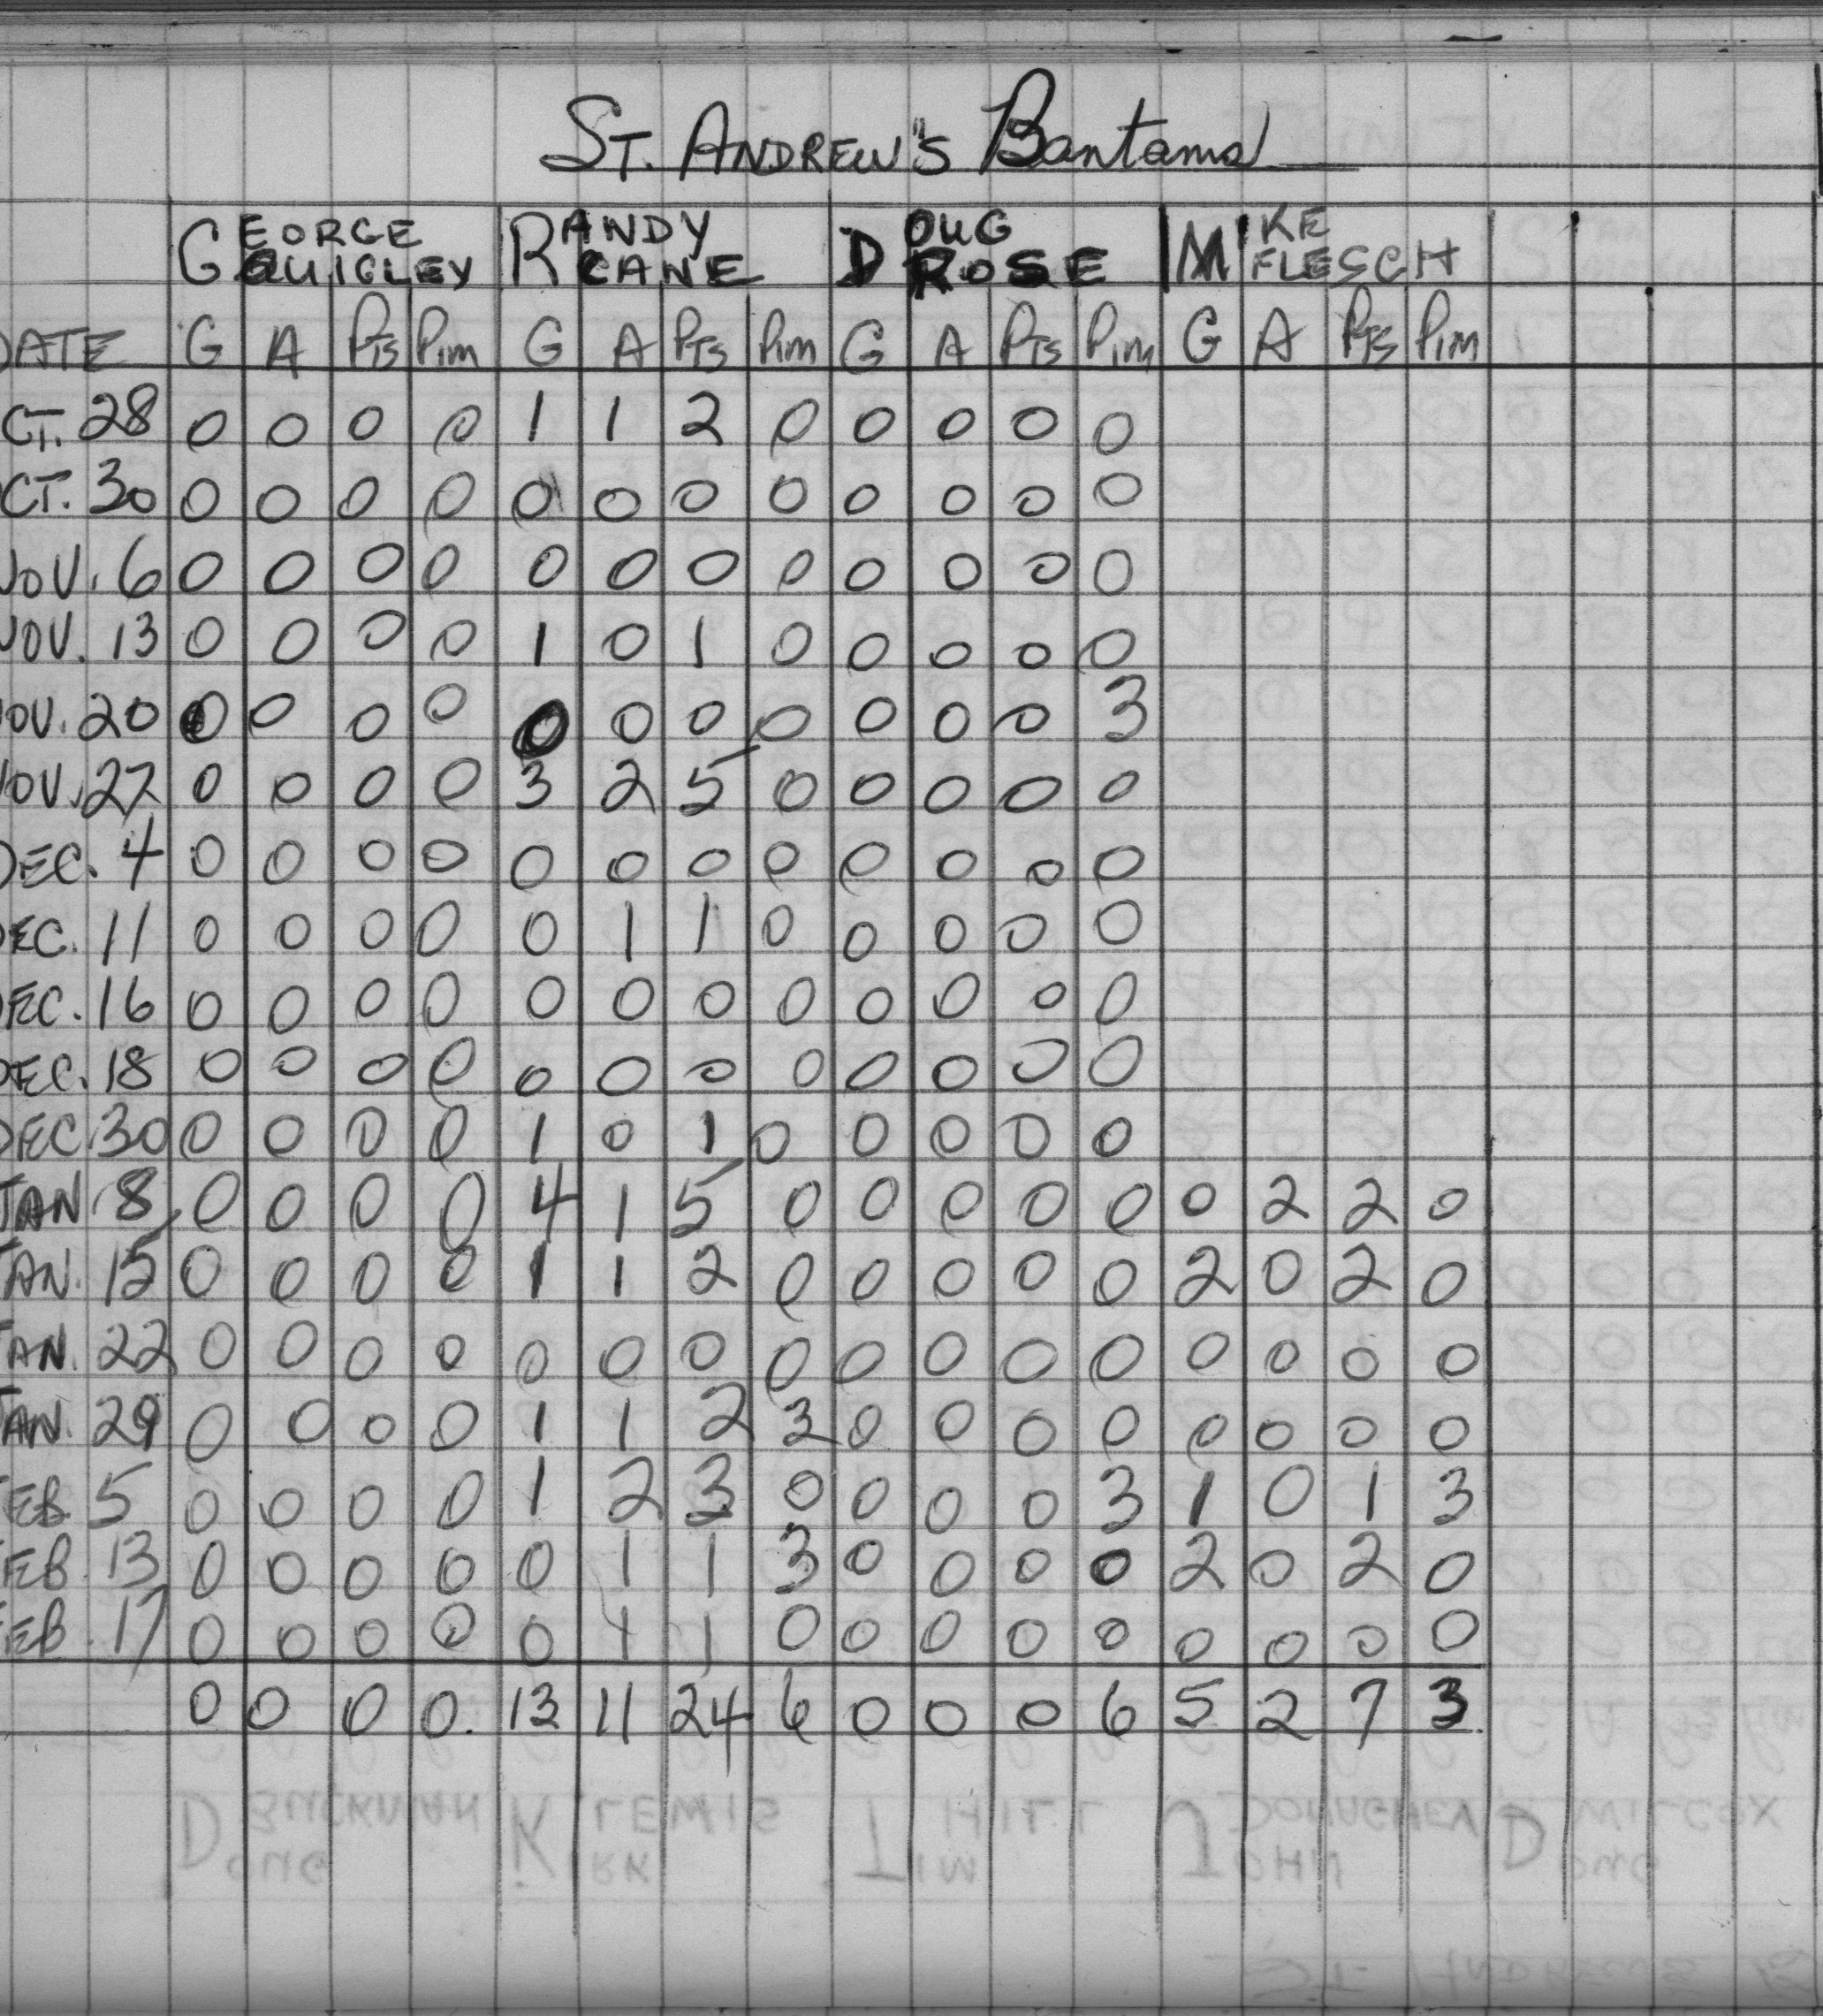 ST. ANDREW'S Bantams
GEORGE QUIGLEY RANDY CANE DOUG ROSE MIKE FLESCH
DATE G A PTS PIM G A PTS PIM G A PTS PIM G A PTS PIM
CT. 28 0 0 0 0 1 1 2 0 0 0 0 0
CT. 30 0 0 0 0 0 0 0 0 0 0 0 0
NOV. 6 0 0 0 0 0 0 0 0 0 0 0 0
NOV. 13 0 0 0 0 1 0 1 0 0 0 0 0
OV. 20 0 0 0 0 0 0 0 0 0 0 0 3
NOV. 27 0 0 0 0 3 2 5 0 0 0 0 0
DEC. 4 0 0 0 0 0 0 0 0 0 0 0 0
DEC. 11 0 0 0 0 0 1 1 0 0 0 0 0
DEC. 16 0 0 0 0 0 0 0 0 0 0 0 0
DEC. 18 0 0 0 0 0 0 0 0 0 0 0 0
DEC. 30 0 0 0 0 1 0 1 0 0 0 0 0
JAN. 8 0 0 0 0 4 1 5 0 0 0 0 0 0 2 2 0
JAN. 15 0 0 0 0 1 1 2 0 0 0 0 0 2 0 2 0
JAN. 22 0 0 0 0 0 0 0 0 0 0 0 0 0 0 0 0
JAN. 29 0 0 0 0 1 1 2 3 0 0 0 0 0 0 0 0
FEB. 5 0 0 0 0 1 2 3 0 0 0 0 3 1 0 1 3
FEB. 13 0 0 0 0 0 1 1 3 0 0 0 0 2 0 2 0
FEB. 17 0 0 0 0 0 1 1 0 0 0 0 0 0 0 0 0
0 0 0 0. 13 11 24 6 0 0 0 6 5 2 7 3